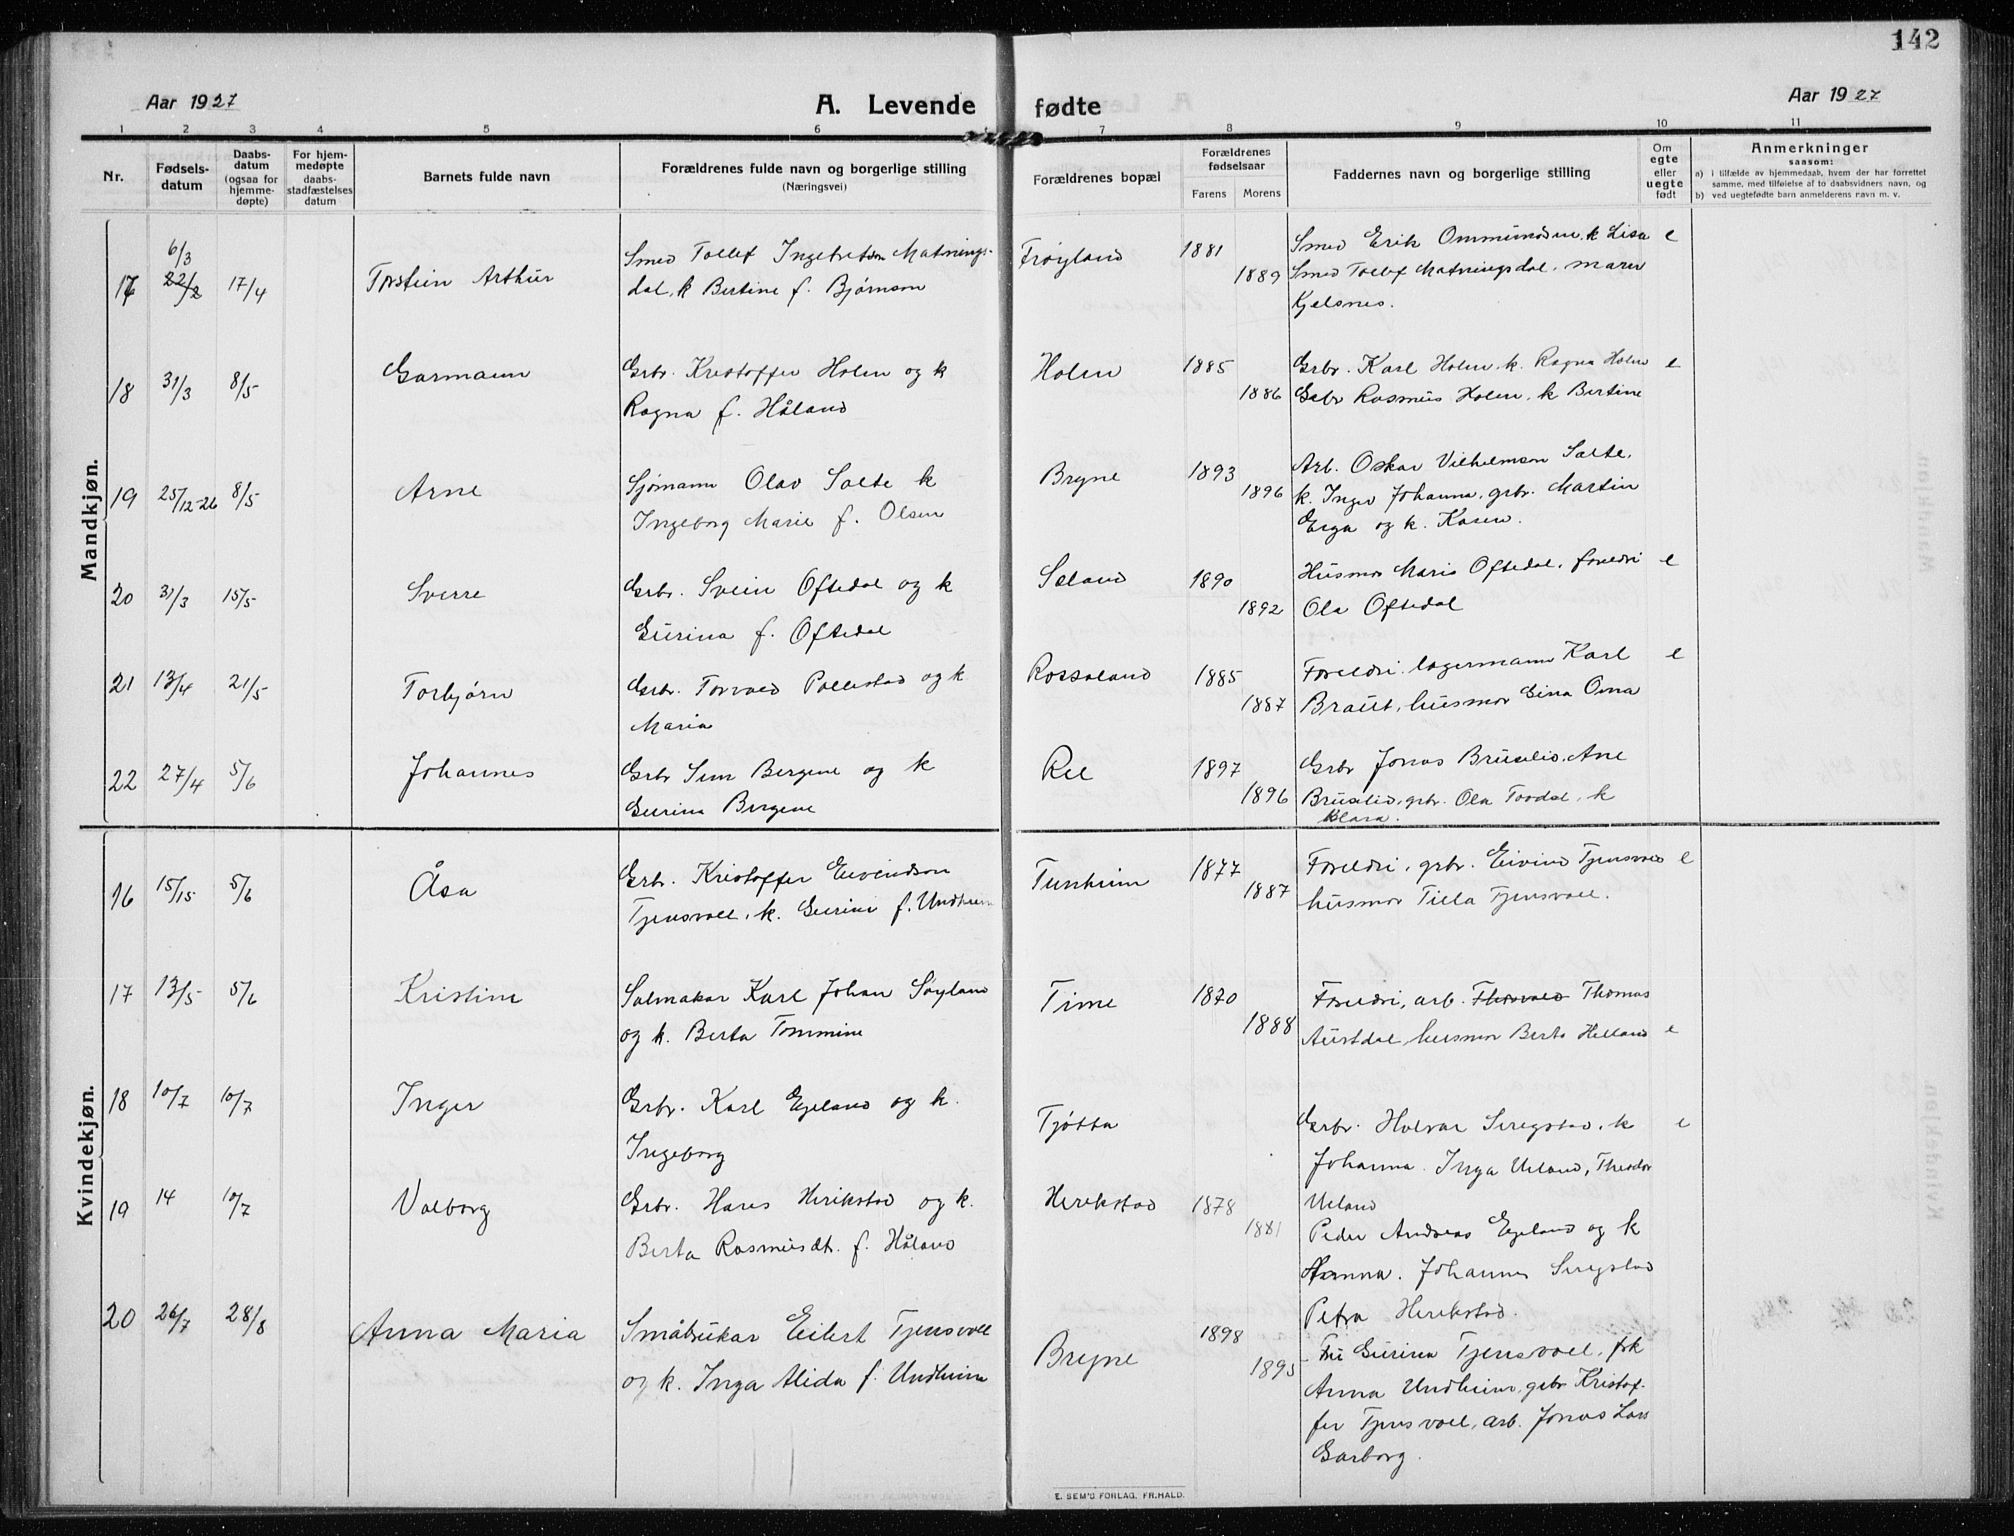 142
Aar 1927
A. Levende fødte
Aar 1927
1 2 3 4 5 6 7 8 9 10 11
Nr.
Fødsels-
datum
Daabs-
datum
(ogsaa for
hjemme-
døpte)
For hjem-
medøpte
daabs-
stadfæstelses
datum
Barnets fulde navn
Forældrenes fulde navn og borgerlige stilling
(Næringsvei)
Forældrenes bopæl
Forældrenes
fødselsaar
Farens Morens
Faddernes navn og borgerlige stilling
Om
egte
eller
uegte
født
Anmerkninger
saasom:
a) i tilfælde av hjemmedaab, hvem der har forrettet
samme, med tilføielse af to daabsvidners navn, og
b) ved uegtefødte barn anmelderens navn m. v.
Mandkjøn.
6/3
17 22/2 17/4 Torstein Arthur
Smed Tollef Ingebretsen Matnings-
dal, k Bertine f. Bjørnson
Frøyland 1881 1889
Smed Erik Ommundsen, k Lisa e
Smed Tollef Matningsdal, Maren
Kjelsnes.
18 31/3 8/5 Garmann
Grbr. Kristoffer Holen og k
Ragna f. Håland
Holen 1885 1886
Grbr. Karl Holen, k. Ragna Holen e
Grbr Rasmus Holen, k Bertine
19 25/12-26 8/5 Arne
Sjømann Olav Salte k
Ingeborg Marie f. Olsen
Bryne 1893 1896
Arb. Oskar Vilhelmson Salte,
k. Inger Johanna, grbr. Martin
Erga og k. Karen.
20 31/3 15/5 Sverre
Grbr. Svein Oftedal og k
Gurina f. Oftedal
Sæland 1890 1892
Husmor Maria Oftedal, foreldri e
Ola Oftedal
21 13/4 21/5 Torbjørn
Grbr. Torvald Pollestad og k
Maria
Rossaland 1885 1887
Foreldri, lagermann Karl e
Braut, husmor Gina Oma
22 27/4 5/6 Johannes
Grbr Sem Bergene og k
Gurine Bergene
Re 1897 1896
Grbr Jonas Bruslid, Ane
Bruslid, grbr. Ola Tordal, k
Klara.
Kvindekjøn.
16 15/15 5/6 Åsa
Grbr. Kristoffer Eivindson
Tjensvoll, k. Gurine f. Undheim
Tunheim 1877 1887
Foreldri, grbr. Eivind Tjensvold e
husmor Tilla Tjensvoll.
17 13/5 5/6 Kristine
Salmakar Karl Johan Søyland
og k. Berta Tommine
Time 1870 1888
Foreldri, arb. Thorvald Thomas
Austdal, husmor Berta Helland e
18 10/7 10/7 Inger
Grbr. Karl Egeland og k.
Ingeborg
Tjøtta
Grbr. Halvar Siregstad, k e
Johanna. Inga Ueland, Theodor
Ueland
19 14 10/7 Valborg
Grbr. Hans Herikstad og k.
Berta Rasmusdt. f. Håland
Herikstad 1878 1881
Peder Andreas Egeland og k
Hanna. Johannes Siregstad
Petra Herikstad.
20 26/7 28/8 Anna Maria
Småbrukar Eilert Tjensvoll
og k. Inga Alida f. Undheim
Bryne 1898 1895
Fru Gurina Tjensvoll, frk
Anna Undheim, grbr Kristof-
fer Tjensvoll, arb. Jonas Lars
Garborg
E. SEM'S FORLAG, FR.HALD.